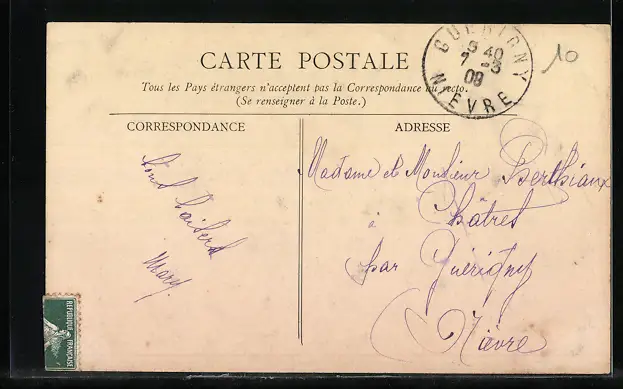 CARTE POSTALE
Tous les Pays étrangers n'acceptent pas la Correspondance au recto.
(Se renseigner à la Poste.)
GUERIGNY
9 40
7 -3
09
NIEVRE
10
CORRESPONDANCE
Bons baisers
Mary.
ADRESSE
Madame et Monsieur Berthiaux
Châtres
à
par Guérigny
Nièvre
REPUBLIQUE FRANÇAISE